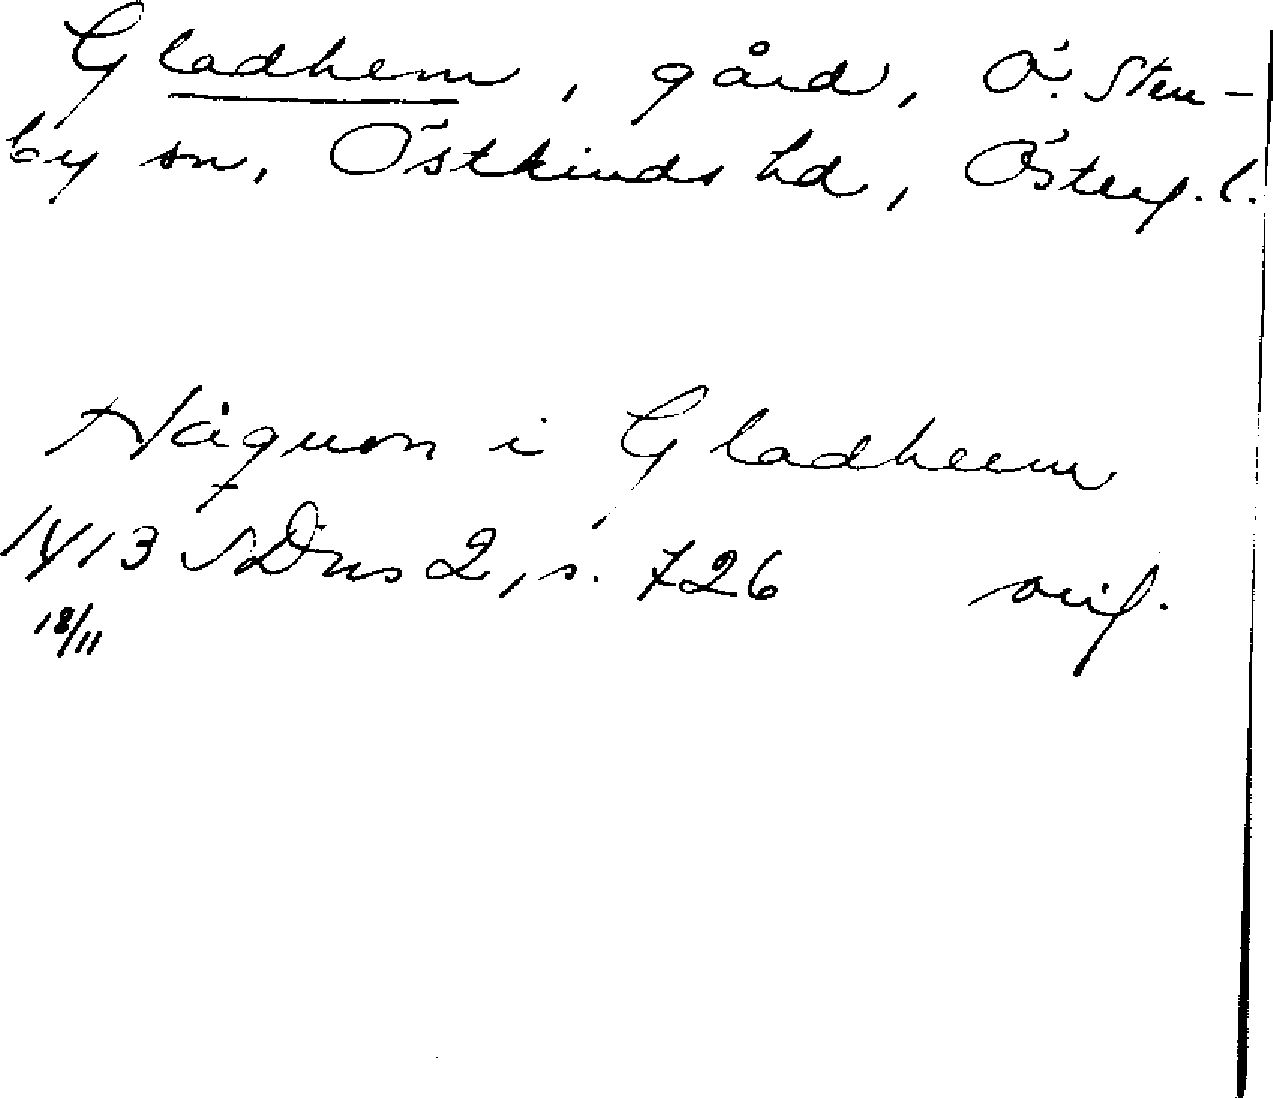 Gladhem, gård, Ö. Sten-
by sn, Östkinds hd, Österg. l.
Haquon i Gladheem
1413 SDns 2, s. 726 orig.
18/11